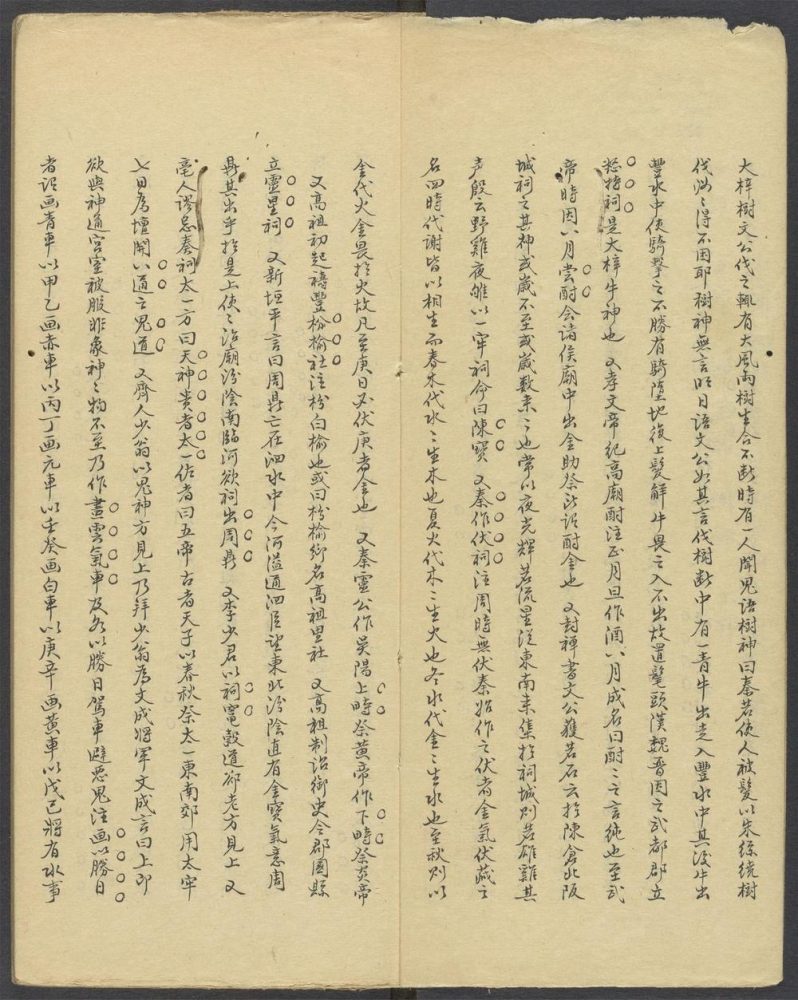 大梓樹文公伐之輒有大風雨樹生合不斷時有一人聞鬼語樹神曰秦若使人被髮以朱絲繞樹
伐汝之得不困耶樹神無言明日語文公如其言伐樹斷中有一青牛出走入豐水中其後牛出
豐水中使騎擊之不勝有騎墮地復上髮解牛畏之入不出故置髦頭漢魏晉因之武都郡立
怒特祠是大梓牛神也 又孝文帝紀高廟酎注正月旦作酒八月成名曰酎二之言純也至武
帝時因八月嘗酎会諸侯廟中出金助祭所謂酎金也 又封禅書文公獲若石云于陳倉北阪
城祠之其神或歲不至或歲數来二也常以夜光輝若流星從東南来集於祠城則若雄雞其
声殷云野雞夜雊以一牢祠命曰陳寶 又秦作伏祠注周時無伏秦始作之伏者金氣伏藏之
名四時代謝皆以相生而春木代水二生木也夏火代木二生火也冬水代金二生水也至秋則以
金代火金畏於火故凡至庚日必伏庚者金也 又秦靈公作吳陽上畤祭黃帝作下畤祭炎帝
又高祖初起禱豐枌榆社注枌白榆也或曰枌榆鄉名高祖里社 又高祖制詔御史令郡國縣
立靈星祠 又新垣平言曰周鼎亡在泗水中今河溢通泗臣望東北汾陰直有金寶氣意周
鼎其出乎於是上使二治廟汾陰南臨河欲祠出周鼎 又李少君以祠竈穀道卻老方見上 又
亳人謬忌奏祠太一方曰天神貴者太一佐者曰五帝古者天子以春秋祭太一東南郊用太牢
七日為壇開八通之鬼道 又齊人少翁以鬼神方見上乃拜少翁為文成將軍文成言曰上即
欲與神通宮室被服非象神二物不至乃作畫雲氣車及各以勝日駕車避惡鬼注画以勝日
者謂画青車以甲乙画赤車以丙丁画元車以壬癸画白車以庚辛画黃車以戊己將有水事